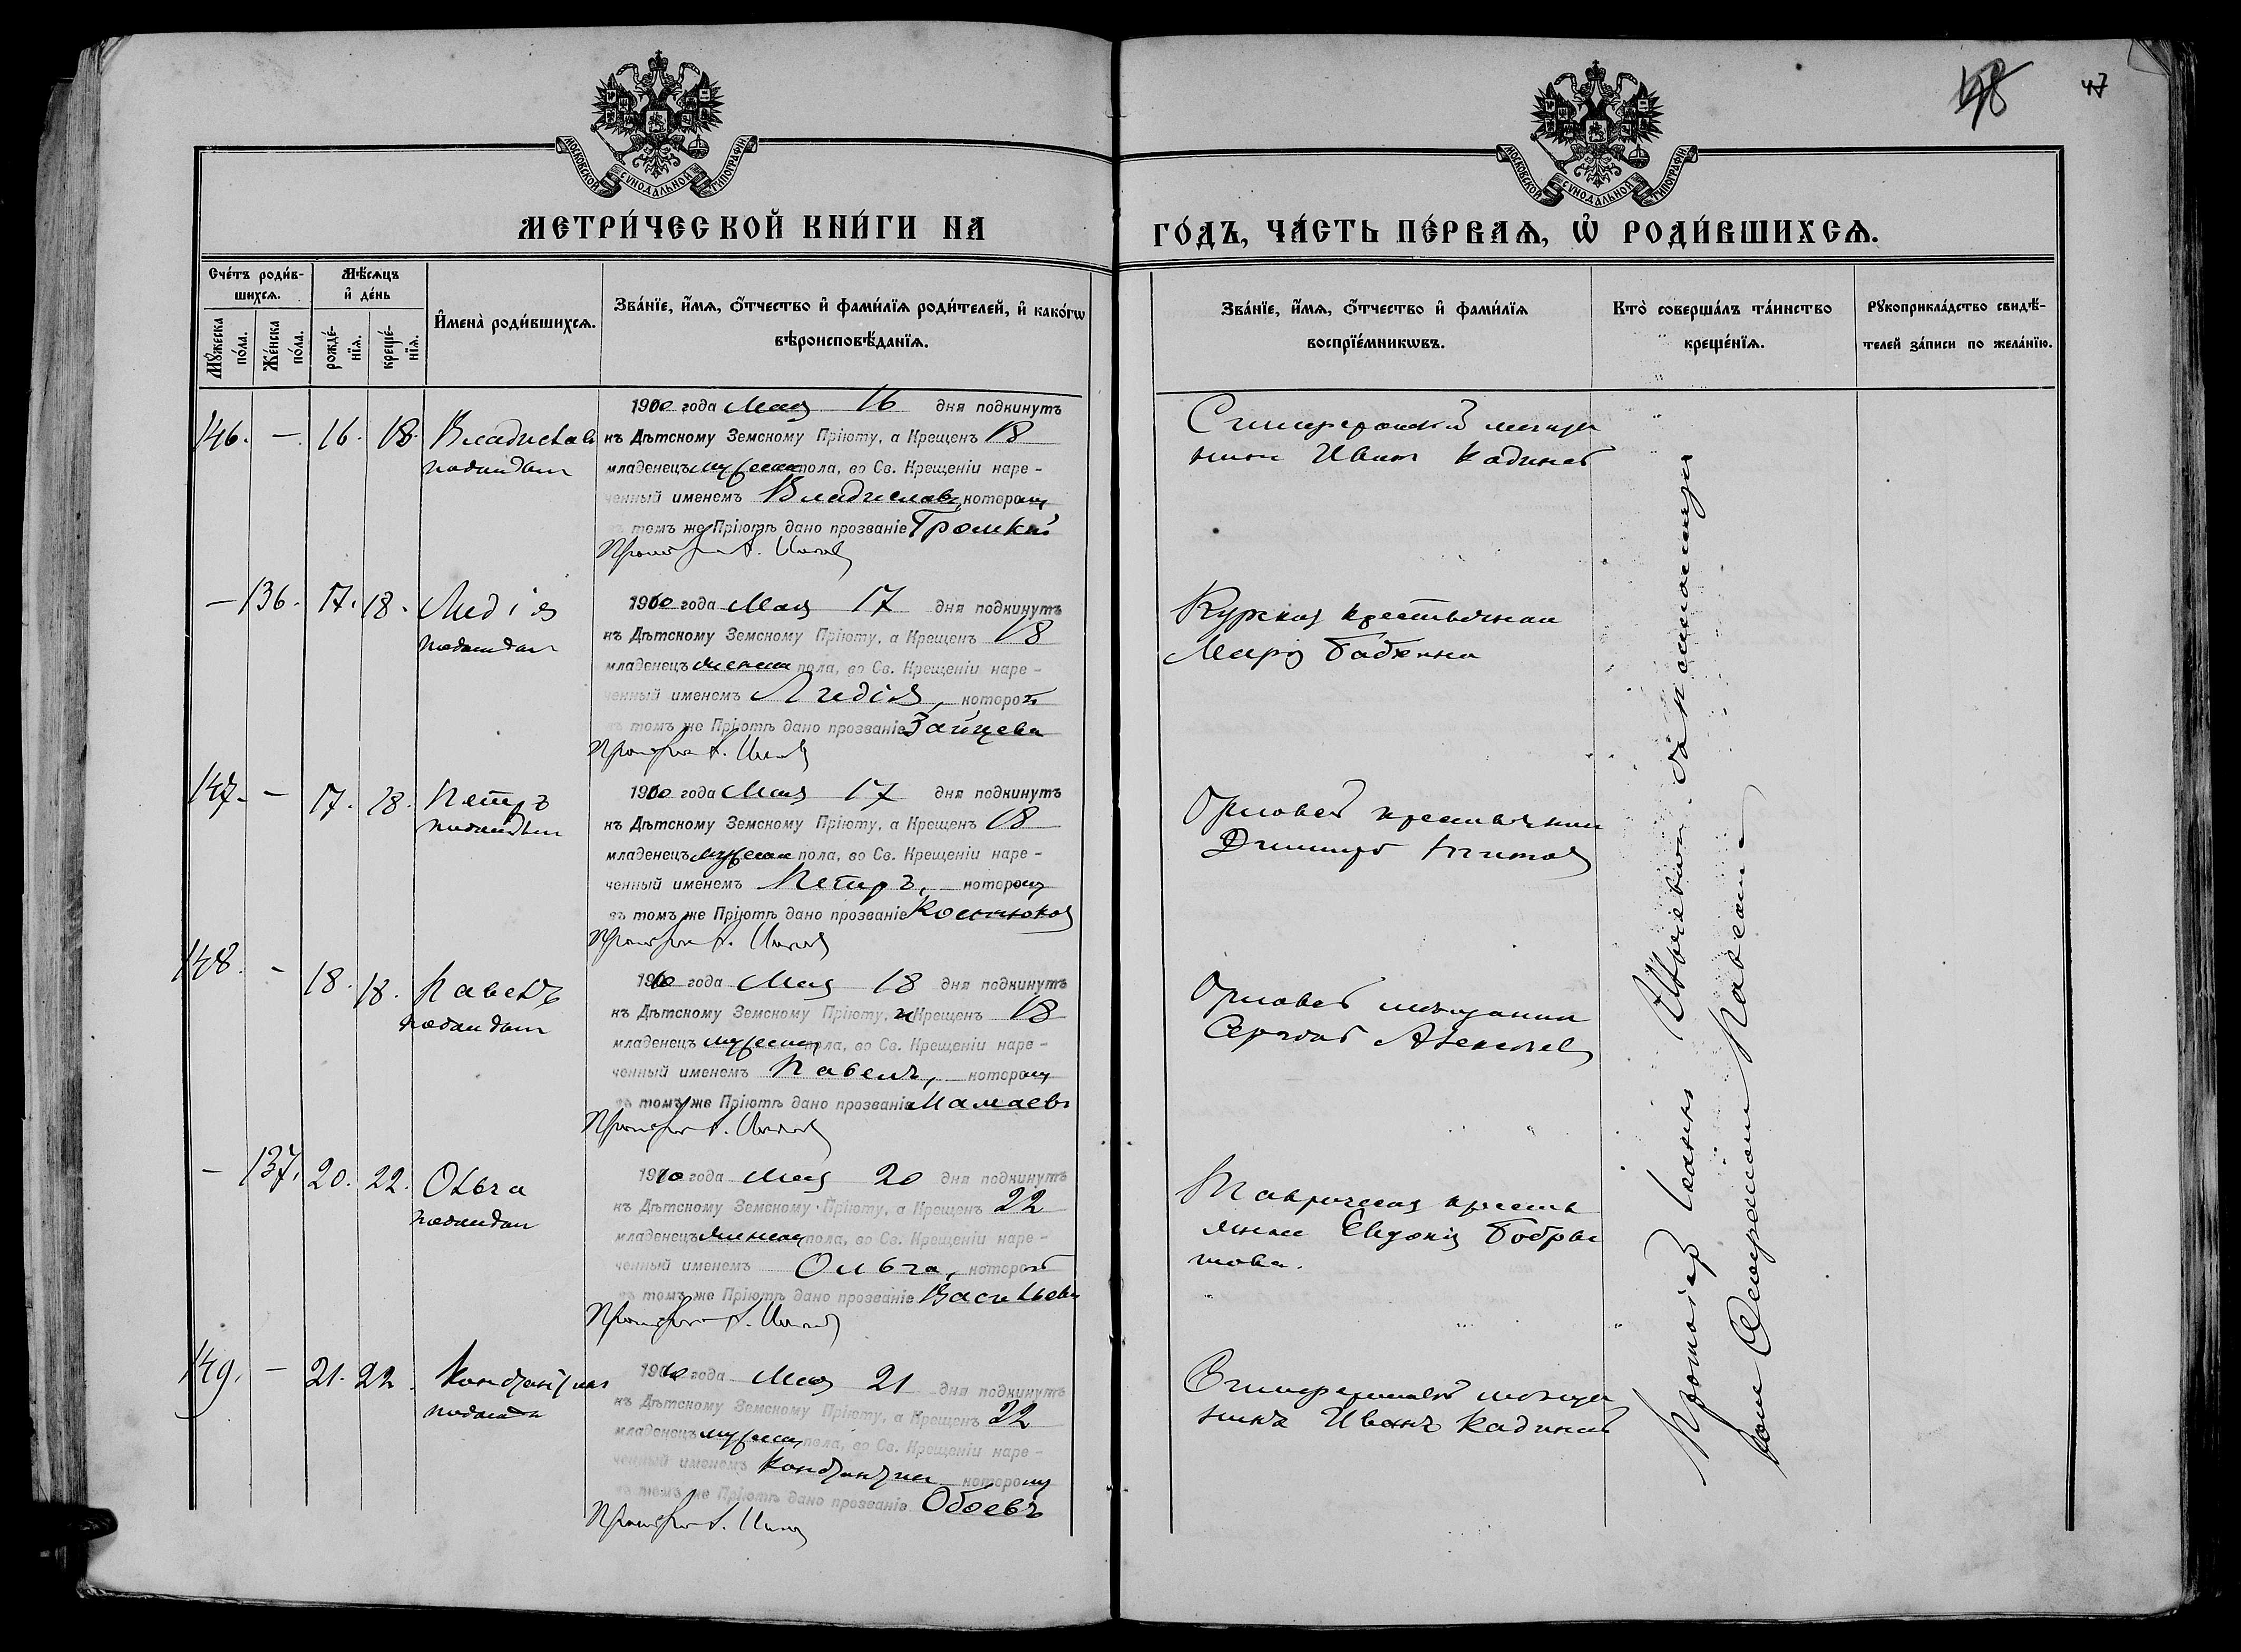 148 47
МОСКОВСКОЙ СУНОДАЛЬНОЙ ТИПОГРАФІИ
МОСКОВСКОЙ СУНОДАЛЬНОЙ ТИПОГРАФІИ
МЕТРИ́ЧЕСКОЙ КНИ́ГИ НА
ГО́ДЪ, ЧА́СТЬ ПЕ́РВАѦ, Ѡ҆ РОДИ́ВШИХСѦ.
Сче́тъ роди́в-
шихсѧ.
Мꙋ́жеска по́ла.
Же́нска по́ла.
Мѣ́сѧцъ
и҆ де́нь
рожде́-
нїѧ.
креще́-
нїѧ.
И҆мена̀ роди́вшихсѧ.
Зва́нїе, и҆́мѧ, ѻ҆́тчество и҆ фами́лїѧ роди́телей, и҆ како́гѡ
вѣроисповѣ́данїѧ.
Зва́нїе, и҆́мѧ, ѻ҆́тчество и҆ фами́лїѧ
воспрїе́мникѡвъ.
Кто̀ соверша́лъ та́инство
креще́нїѧ.
Рꙋкоприкла́дство свидѣ́-
телей за́писи по жела́нїю.
146. — 16. 18. Владиславъ
подкидыш
1910 года Мая 16 дня подкинутъ
къ Дѣтскому Земскому Пріюту, а Крещенъ 18
младенецъ мужеска пола, во Св. Крещеніи наре-
ченный именемъ Владиславъ, котором
въ томъ же Пріютѣ дано прозваніе Громкій
Симферопольскій мѣща
нинъ Иванъ Кадинскій
— 136. 17. 18. Лидія
подкидыш
1910 года Мая 17 дня подкинутъ
къ Дѣтскому Земскому Пріюту, а Крещенъ 18
младенецъ женска пола, во Св. Крещеніи наре-
ченный именемъ Лидія, которой
въ томъ же Пріютѣ дано прозваніе Зайцева
Курская крестьянка
Марія Бабкина
147. — 17. 18. Петръ
подкидыш
1910 года Мая 17 дня подкинутъ
къ Дѣтскому Земскому Пріюту, а Крещенъ 18
младенецъ мужеска пола, во Св. Крещеніи наре-
ченный именемъ Петръ, котором
въ томъ же Пріютѣ дано прозваніе Костюковъ
Орловскій крестьянинъ
Димитрій
148. — 18. 18. Павелъ
подкидыш
1910 года Мая 18 дня подкинутъ
къ Дѣтскому Земскому Пріюту, и Крещенъ 18
младенецъ мужеска пола, во Св. Крещеніи наре-
ченный именемъ Павелъ, котором
въ томъ же Пріютѣ дано прозваніе Мамаевъ
Орловскій мѣщанин
Сергѣй Алексѣев
— 137. 20. 22. Ольга
подкидыш
1910 года Мая 20 дня подкинутъ
къ Дѣтскому Земскому Пріюту, а Крещенъ 22
младенецъ женска пола, во Св. Крещеніи наре-
ченный именемъ Ольга, которой
въ томъ же Пріютѣ дано прозваніе Васильева
Таврическая кресть
янка Евдокія Бобры
шова.
149. — 21. 22. Константинъ
подкидыш
1910 года Мая 21 дня подкинутъ
къ Дѣтскому Земскому Пріюту, а Крещенъ 22
младенецъ мужеска пола, во Св. Крещеніи наре-
ченный именемъ Константин котором
въ томъ же Пріютѣ дано прозваніе Обоевъ
Симферопольскій мѣща
нинъ Иванъ Кадинскій
Протоіер Іоаннъ съ псаломщи
ком Павелом